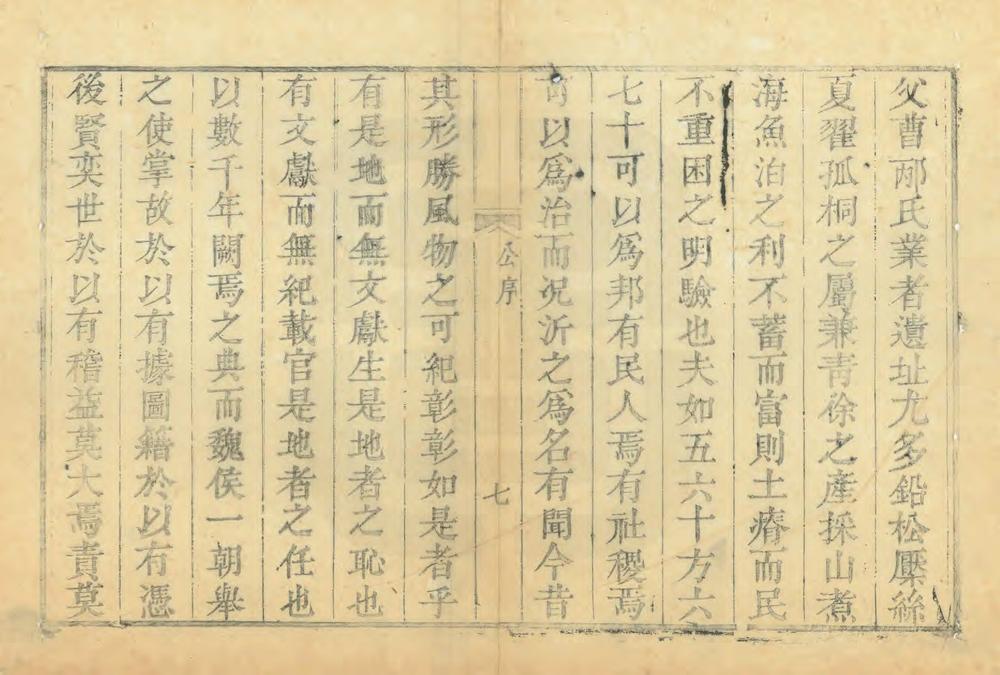 父曹邴氏業者遺址尤多鉛松檿絲
夏翟孤桐之屬兼青徐之產採山煮
海魚泊之利不蓄而富則土瘠而民
不重困之明驗也夫如五六十方六
七十可以爲邦有民人焉有社稷焉
可以爲治而况沂之爲名有聞今昔
公序
七
其形勝風物之可紀彰彰如是者乎
有是地而無文獻生是地者之恥也
有文獻而無紀載官是地者之任也
以數千年闕焉之典而魏侯一朝舉
之使掌故於以有據圖籍於以有憑
後賢奕世於以有稽益莫大焉責莫